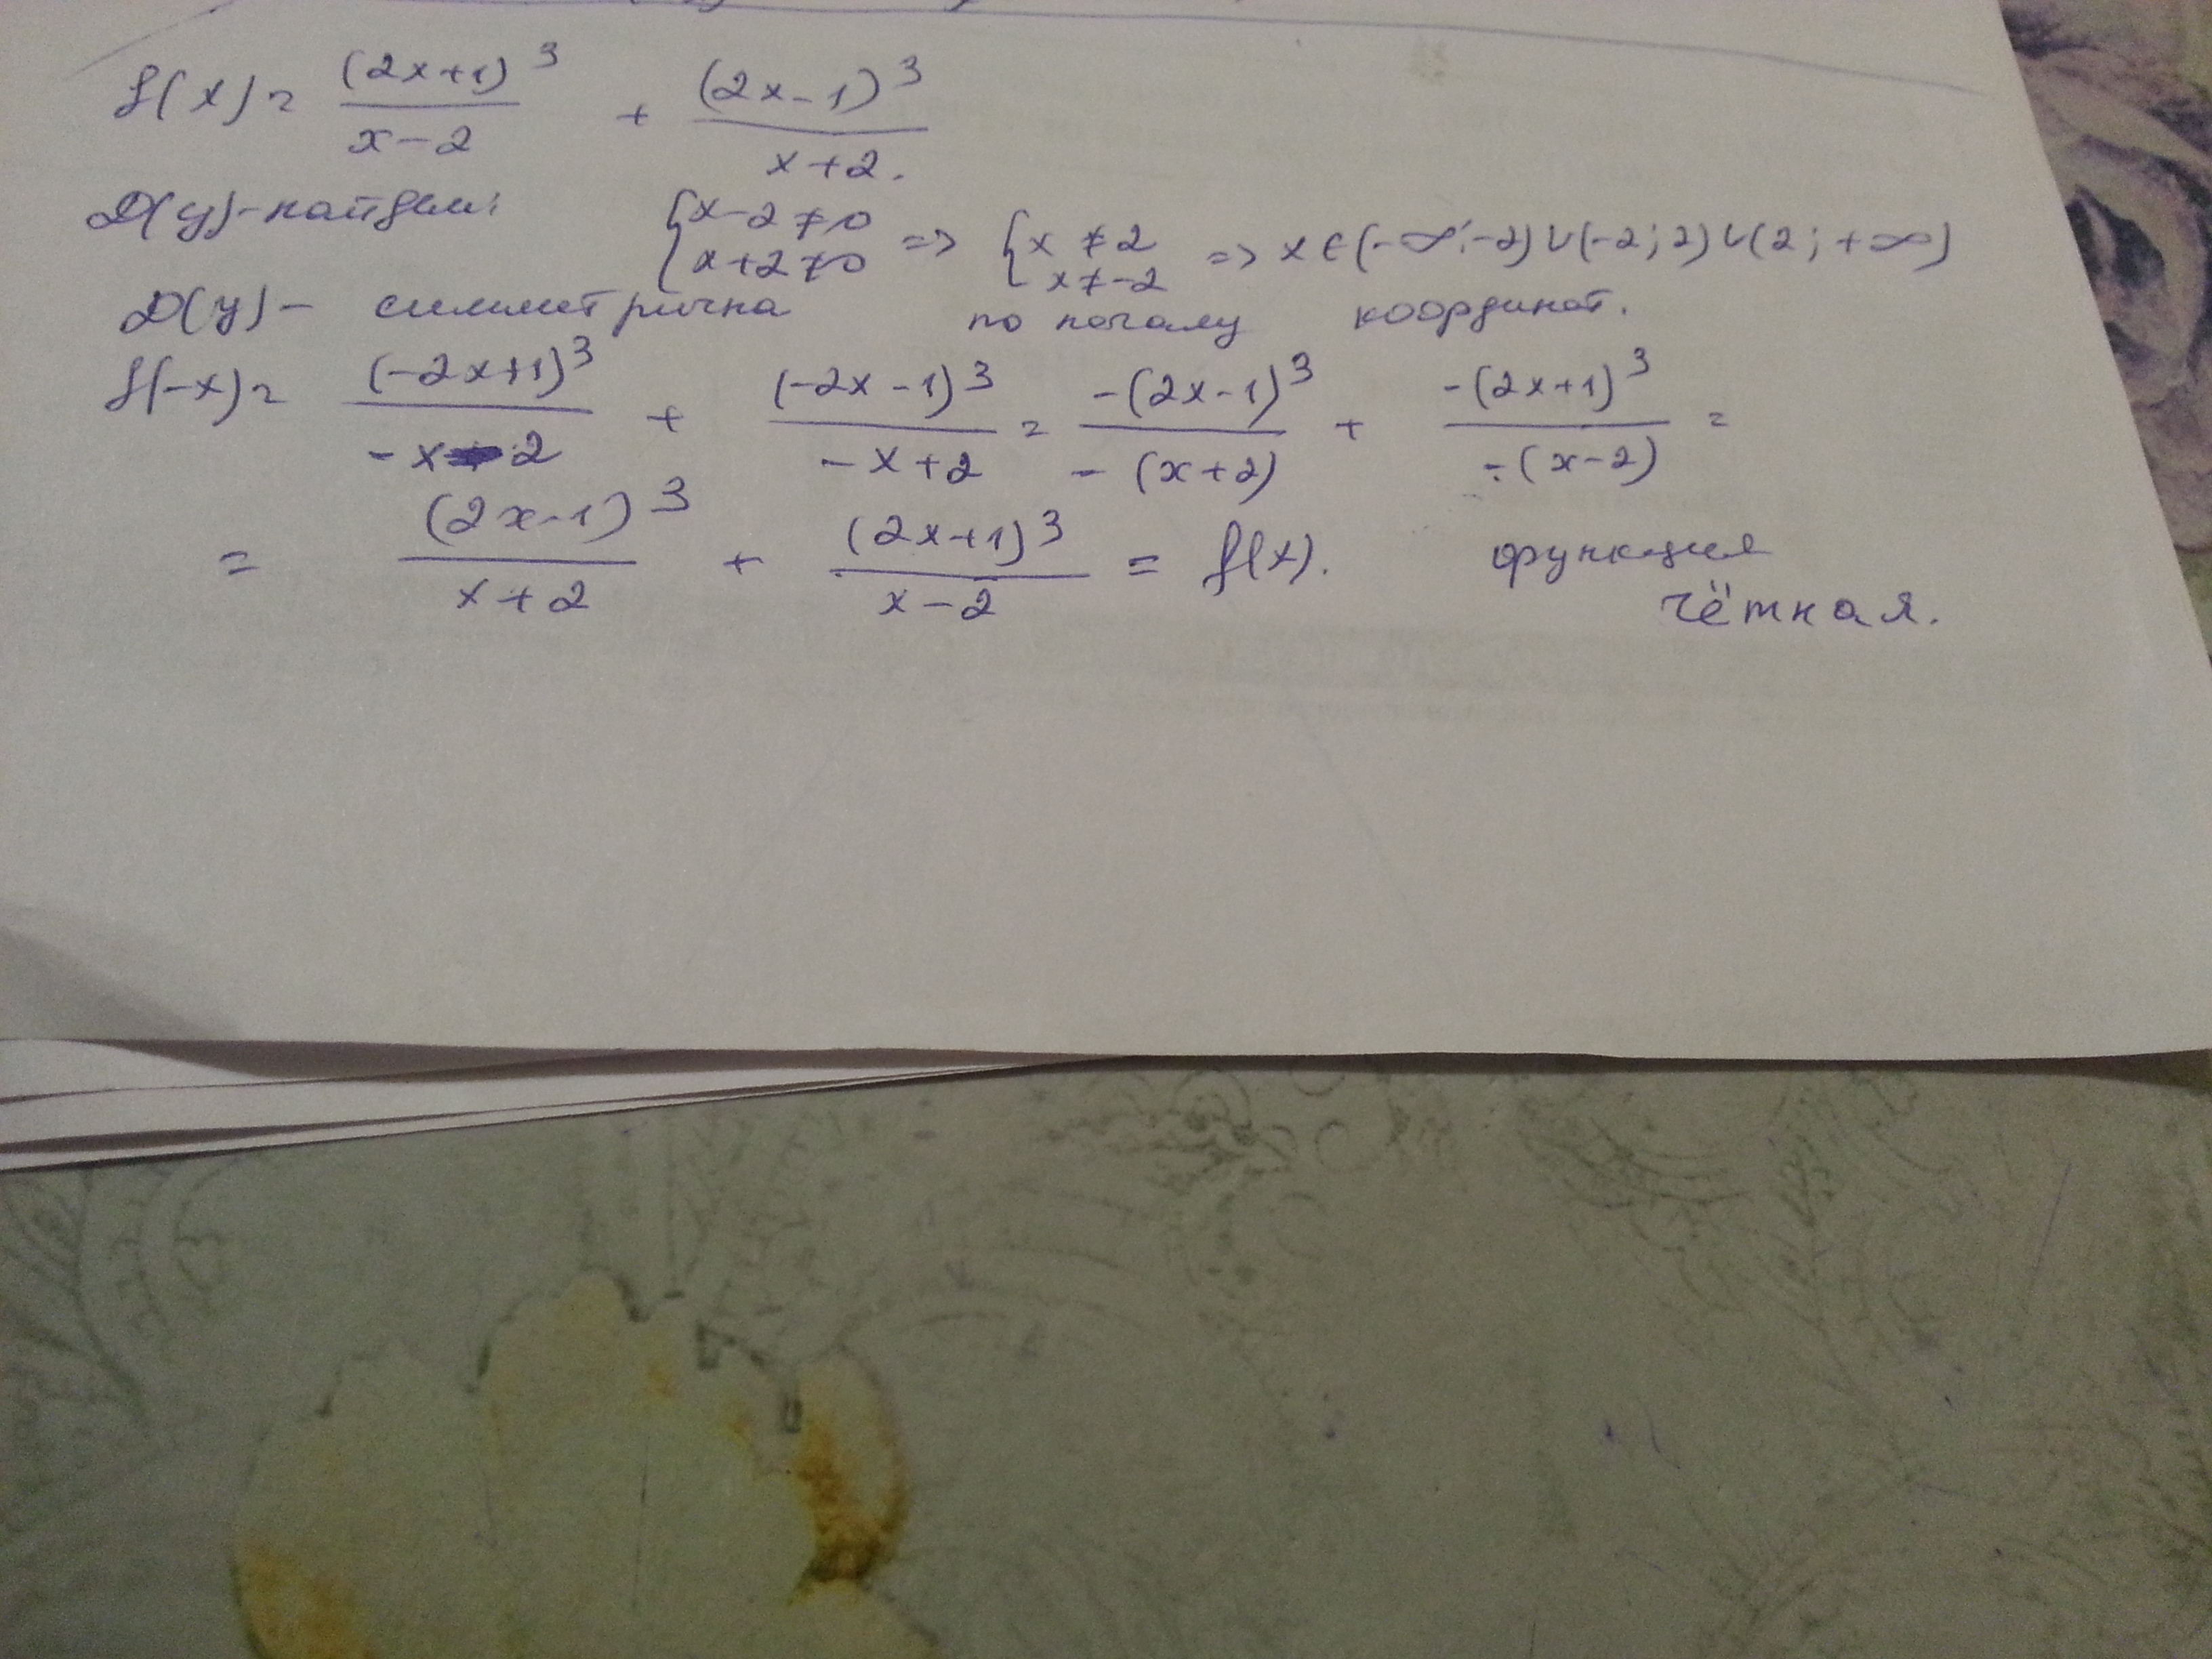 f(x) = (2x+1)³/(x-2) + (2x-1)³/(x+2).
D(y)-найдем: {x-2≠0 x+2≠0 => {x≠2 x≠-2 => x∈(-∞;-2)∪(-2;2)∪(2;+∞)
D(y)- симметрична по началу координат.
f(-x) = (-2x+1)³/(-x-2) + (-2x-1)³/(-x+2) = -(2x-1)³/-(x+2) + -(2x+1)³/-(x-2) =
= (2x-1)³/(x+2) + (2x+1)³/(x-2) = f(x). функция
чётная.